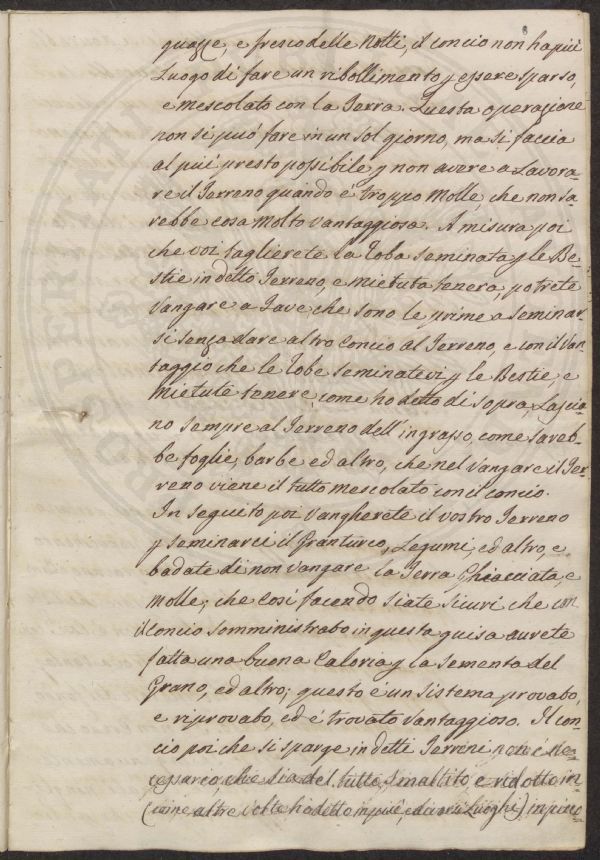 8
quazze, e fresco delle Notti, il concio non ha piú
Luogo di fare un ribollimento p essere sparso,
e mescolato con la Terra. Questa operazione
non si puó fare in un sol giorno, ma si faccia
al piú presto possibile p non avere a Lavora-
re il Terreno quando é troppo Molle, che non sa-
rebbe cosa Molto Vantaggiosa. A misura poi
che voi taglierete la Roba seminata p le Be-
stie in detto Terreno, e mietuta tenera, potrete
Vangare a Fave che sono le prime a seminar-
si senza dare altro Concio al Terreno, e con il Van-
taggio che le Robe seminatevi p le Bestie, e
Mietute tenere, come ho detto di sopra, Lascia-
no sempre al Terreno dell'ingrasso, come sareb-
be foglie, barbe ed altro, che nel Vangare il Ter-
reno viene il tutto mescolato con il concio.
In seguito poi Vangherete il vostro Terreno
p seminarci il Granturco, Legumi, ed altro, e
badate di non Vangare la Terra Ghiacciata, e
Molle; che cosí facendo siate sicuri che con
il Concio somministrato in questa guisa avrete
fatta una buona Caloria p la sementa del
Grano, ed altro; questo é un sistema provato,
e riprovato, ed é trovato Vantaggioso. Il con-
cio poi che si sparge in detti Terreni non é ne-
cessario, che sia del tutto smaltito e ridotto in
(come altre Volte ho detto in piú, e diversi Luoghi)